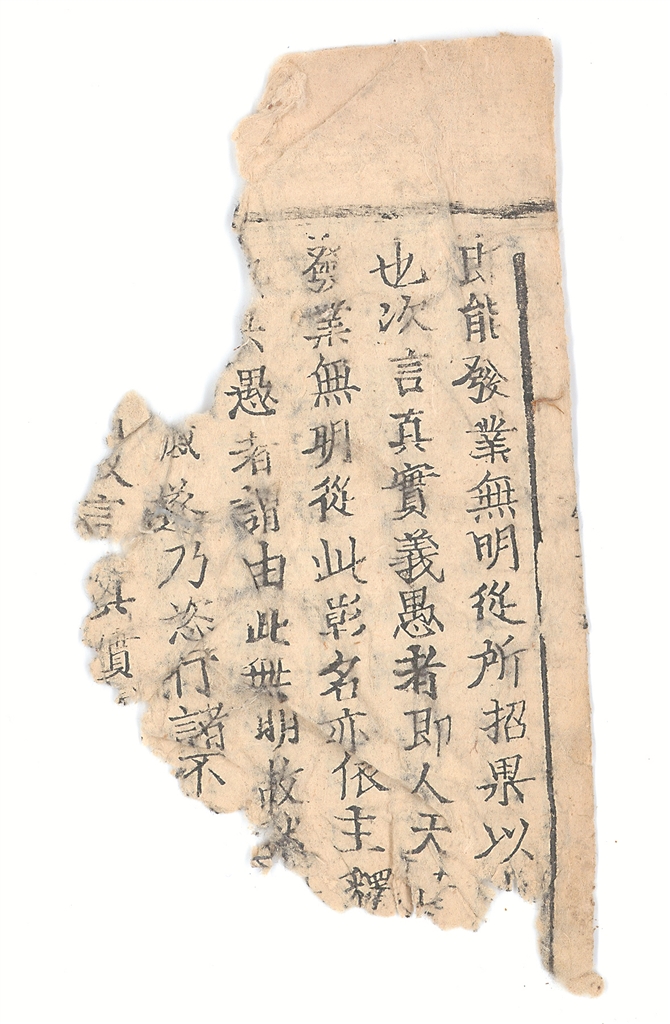 即能發業無明從所招果以
也次言真實義愚者即人天
發業無明從此彰名亦依主釋
愚者謂由此無明故迷
感遂乃恣行諸不
故言真實